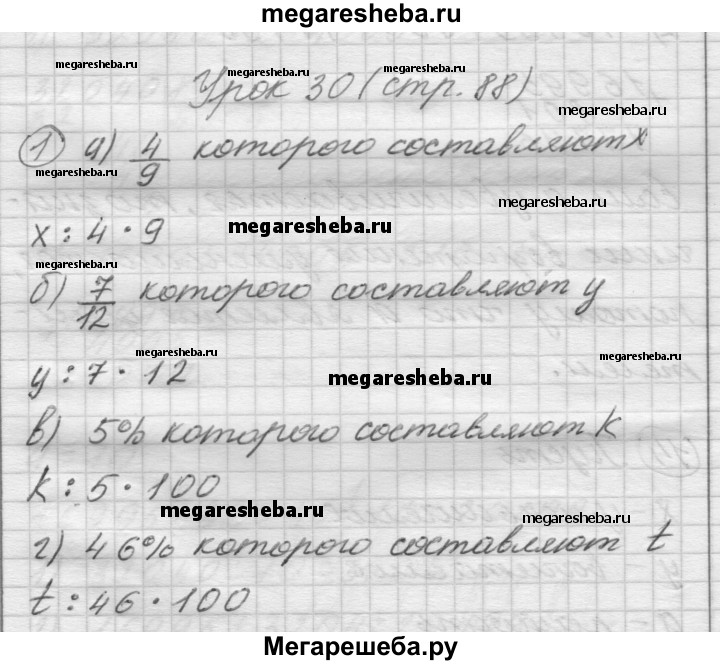 megaresheba.ru
megaresheba.ru megaresheba.ru
Урок 30 (стр. 88)
megaresheba.ru
1 а) 4/9 которого составляют x
megaresheba.ru megaresheba.ru
x : 4 · 9 megaresheba.ru
megaresheba.ru
б) 7/12 которого составляют y
megaresheba.ru megaresheba.ru
y : 7 · 12 megaresheba.ru
в) 5% которого составляют k
k : 5 · 100
megaresheba.ru megaresheba.ru
г) 46% которого составляют t
t : 46 · 100
Мегарешеба.ру